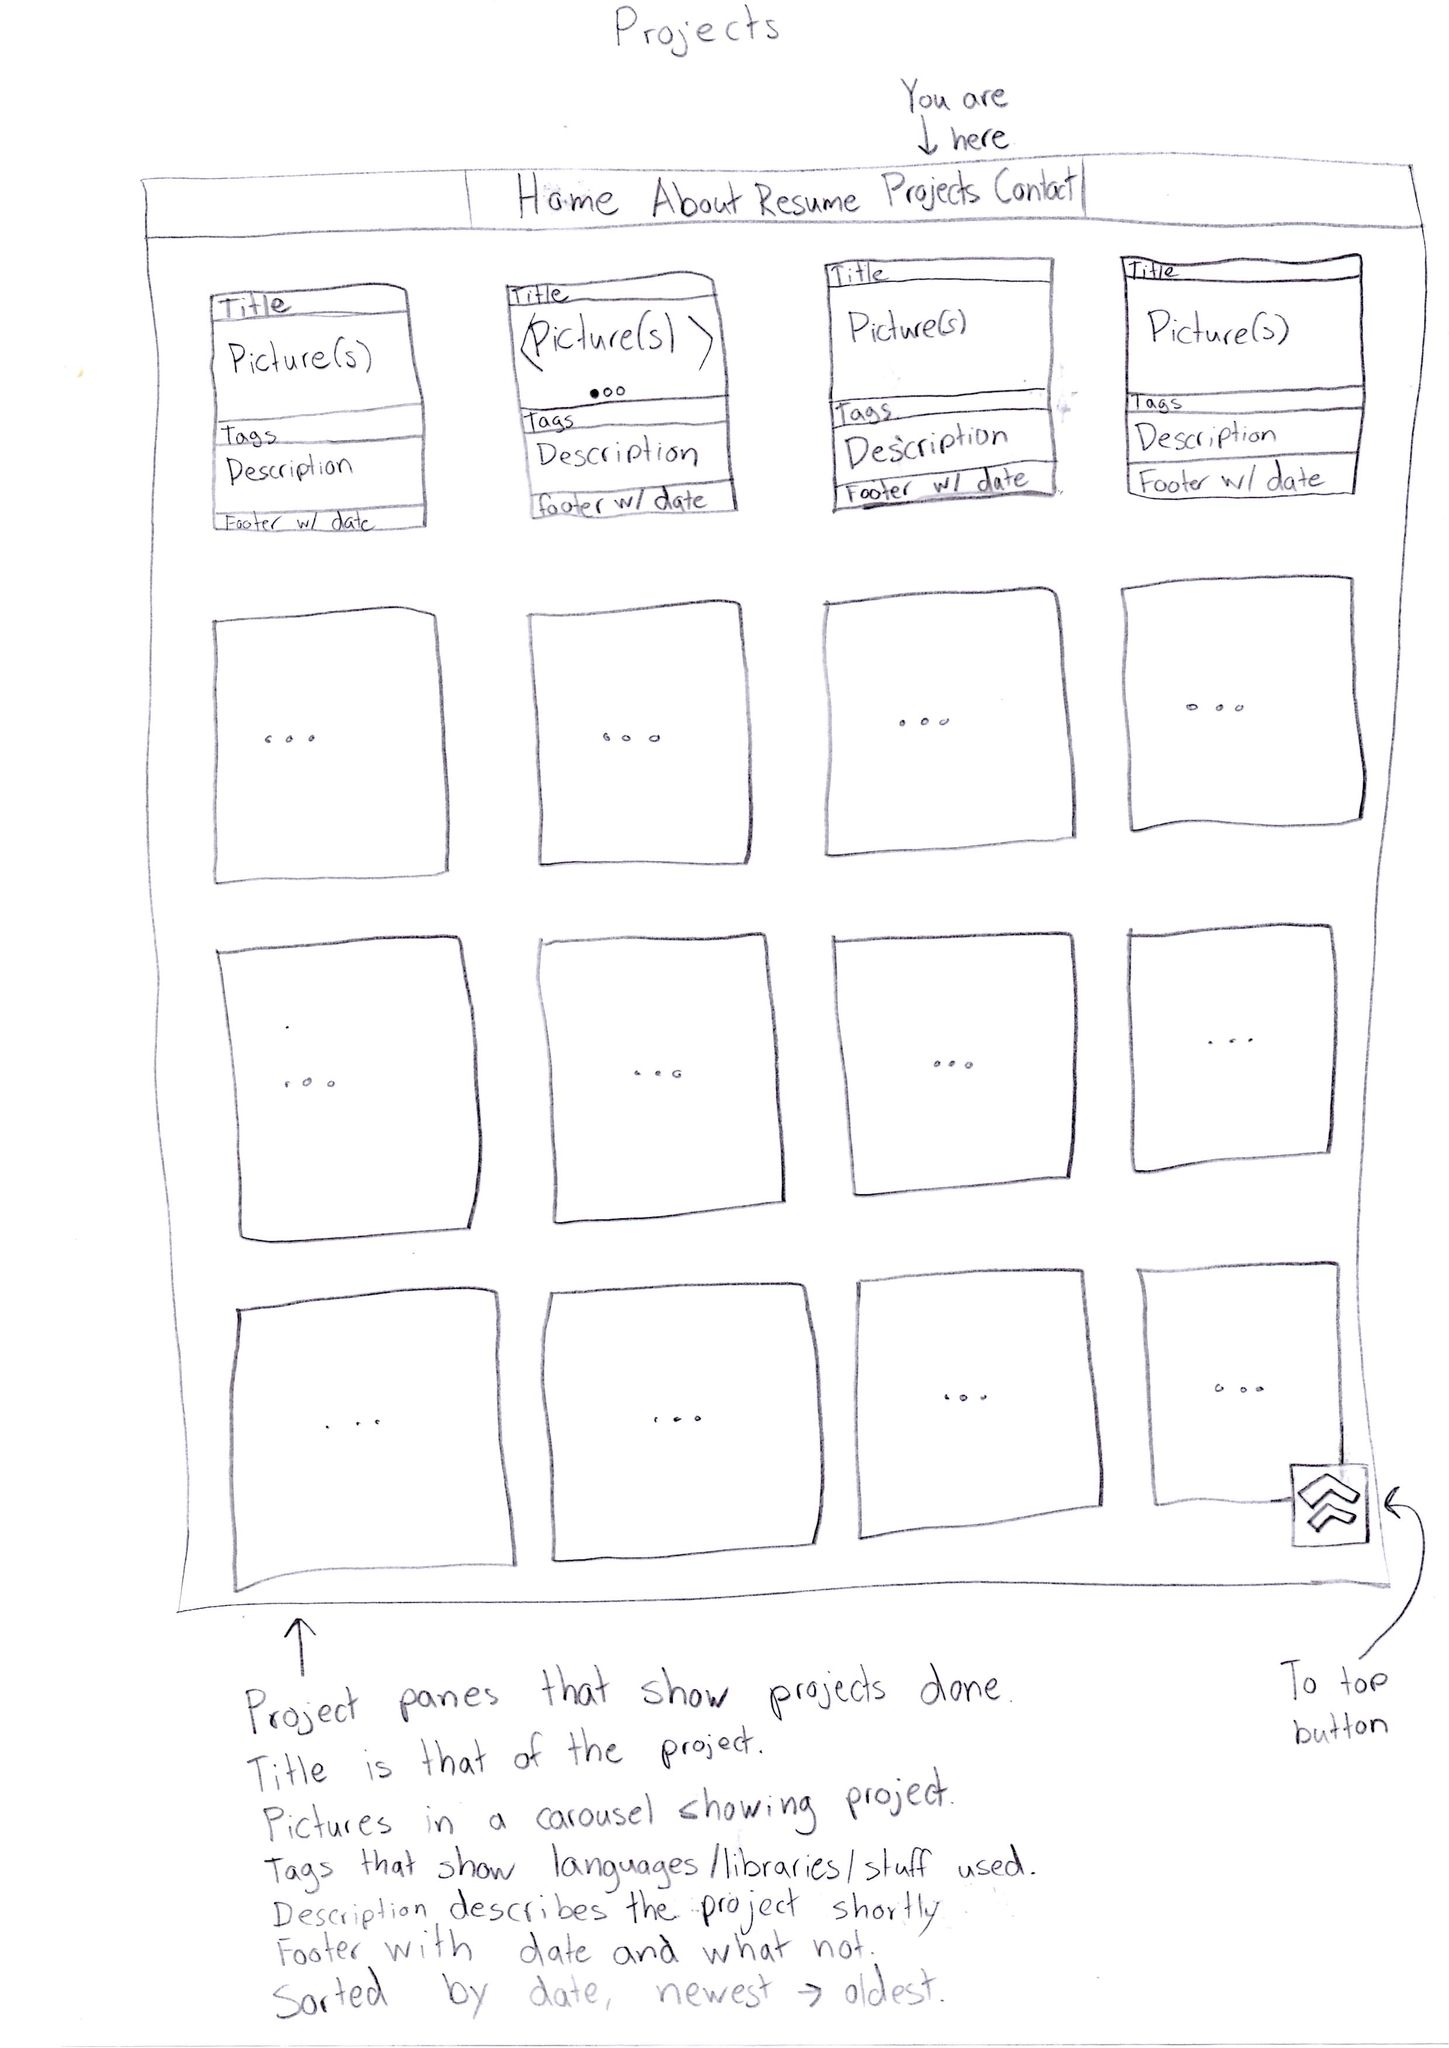 Projects
You are
here
Home About Resume Projects Contact
Title
Picture(s)
Tags
Description
Footer w/ date
Title
<Picture(s) >
Tags
Description
footer w/ date
Title
Picture(s)
Tags
Description
Footer w/ date
Title
Picture(s)
Tags
Description
Footer w/ date
...
...
...
...
...
...
...
...
...
...
...
...
Project panes that show projects done.
Title is that of the project.
Pictures in a carousel showing project.
Tags that show languages/libraries/stuff used.
Description describes the project shortly
Footer with date and what not.
Sorted by date, newest → oldest.
To top
button